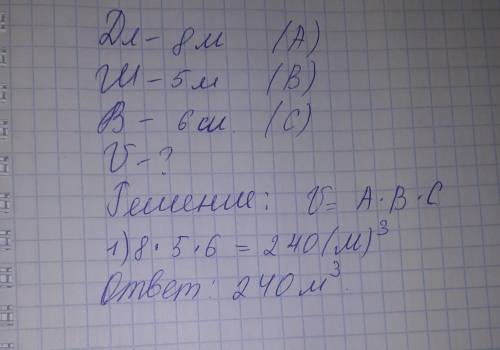 Дл - 8 м (A)
Ш - 5 м (B)
В - 6 м. (C)
V - ?
Решение: V = A · B · C
1) 8 · 5 · 6 = 240 (м)³
Ответ: 240 м³.